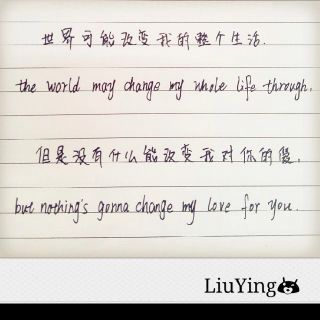 世界可能改变我的整个生活.
the world may change my whole life through.
但是没有什么能改变我对你的爱.
but nothing's gonna change my love for you.
LiuYing